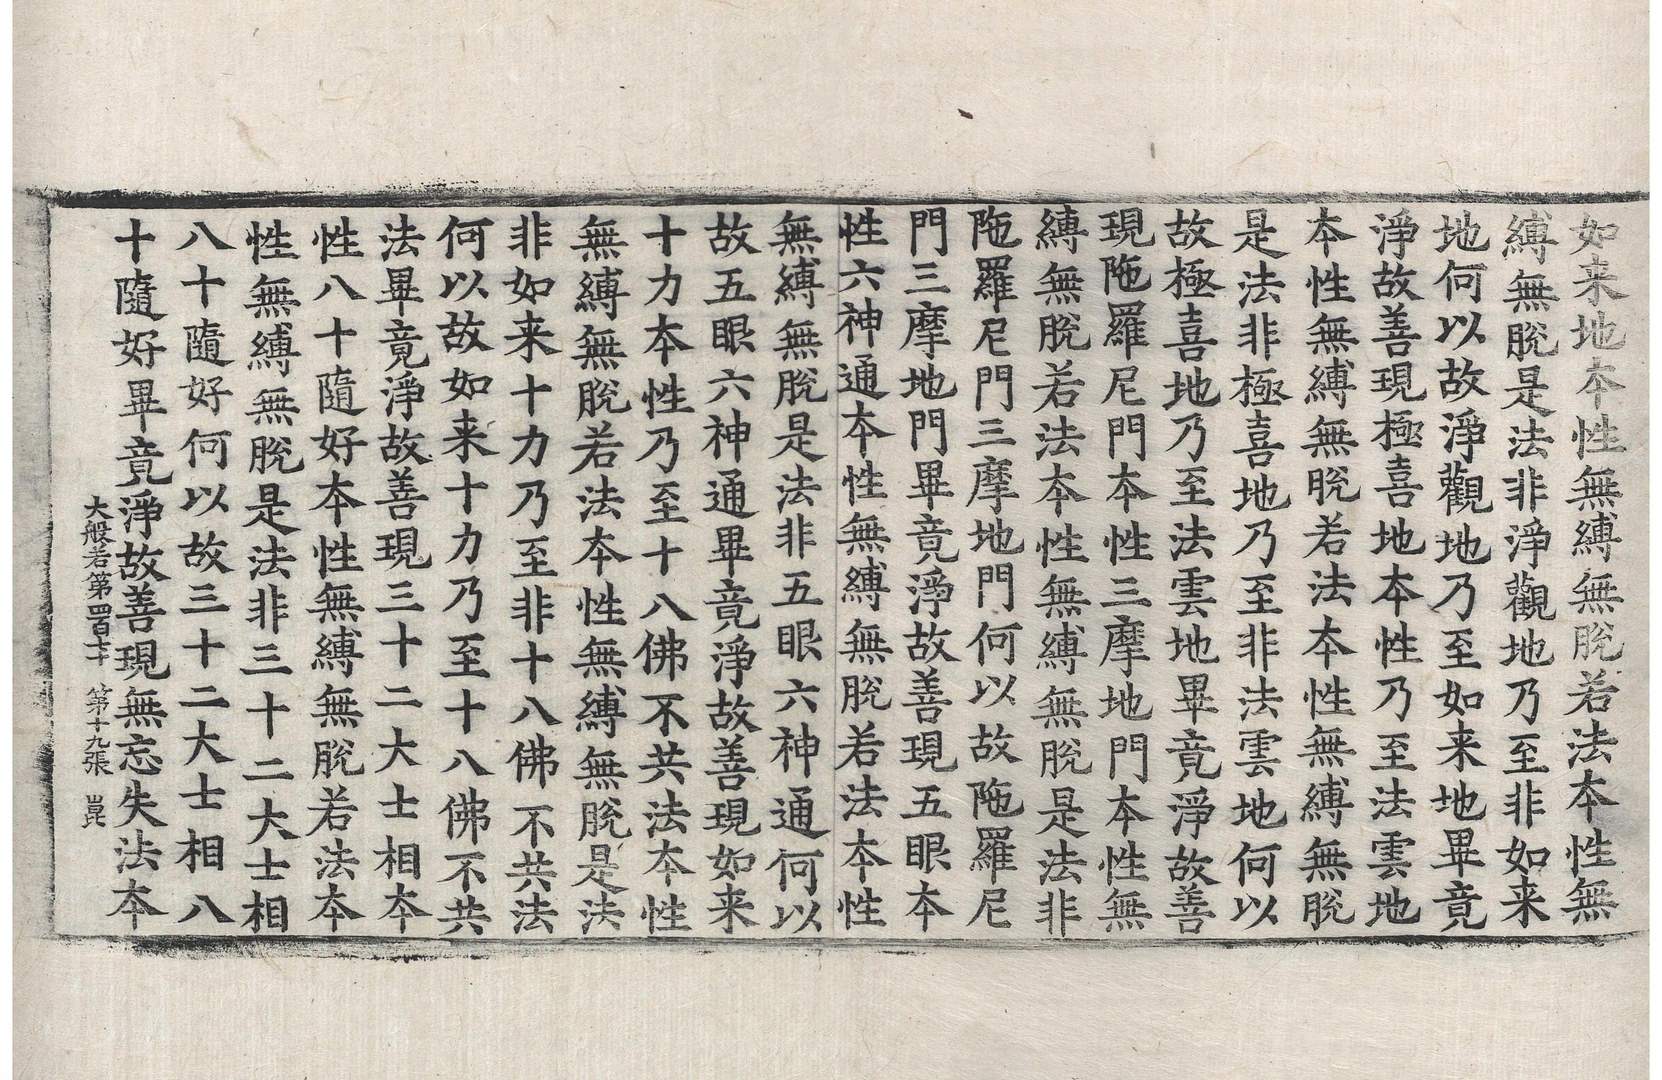 如来地本性無縛無脫若法本性無
縛無脫是法非淨觀地乃至非如来
地何以故淨觀地乃至如来地畢竟
淨故善現極喜地本性乃至法雲地
本性無縛無脫若法本性無縛無脫
是法非極喜地乃至非法雲地何以
故極喜地乃至法雲地畢竟淨故善
現陁羅尼門本性三摩地門本性無
縛無脫若法本性無縛無脫是法非
陁羅尼門三摩地門何以故陁羅尼
門三摩地門畢竟淨故善現五眼本
性六神通本性無縛無脫若法本性
無縛無脫是法非五眼六神通何以
故五眼六神通畢竟淨故善現如来
十力本性乃至十八佛不共法本性
無縛無脫若法本性無縛無脫是法
非如来十力乃至非十八佛不共法
何以故如来十力乃至十八佛不共
法畢竟淨故善現三十二大士相本
性八十隨好本性無縛無脫若法本
性無縛無脫是法非三十二大士相
八十隨好何以故三十二大士相八
十隨好畢竟淨故善現無忘失法本
大般若第四百七十 第十九張 崑